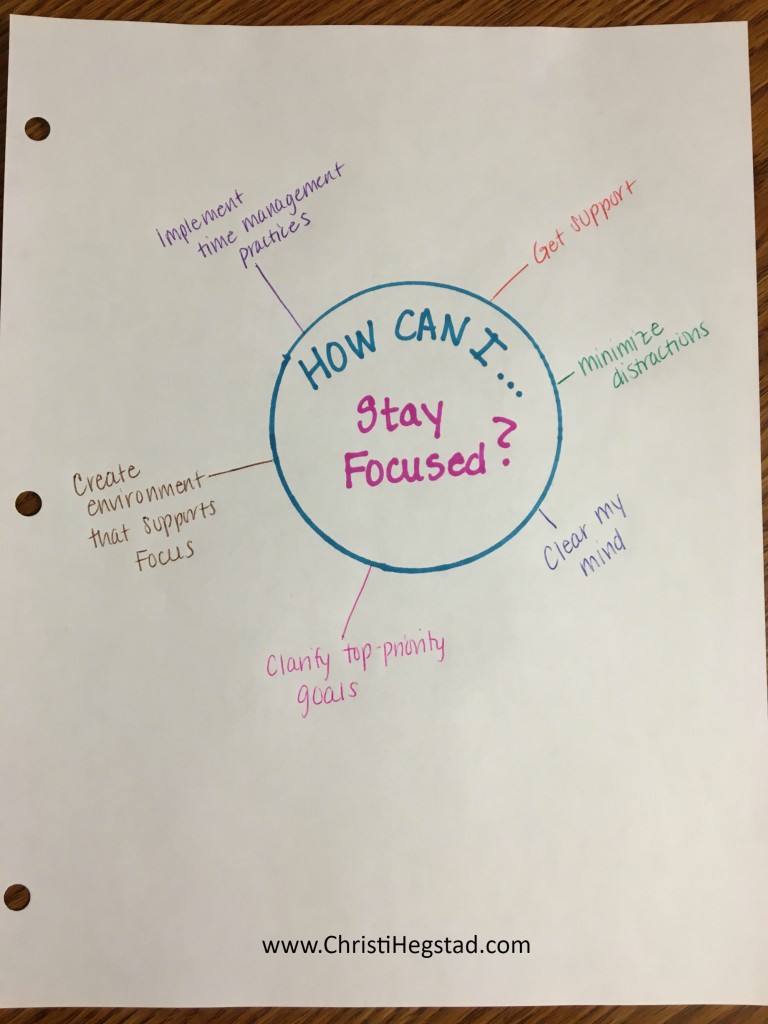 HOW CAN I...
Stay
Focused?
Get support
minimize
distractions
Clear my
mind
Clarify top-priority
goals
Create
environment
that supports
Focus
Implement
time management
practices
www.ChristiHegstad.com